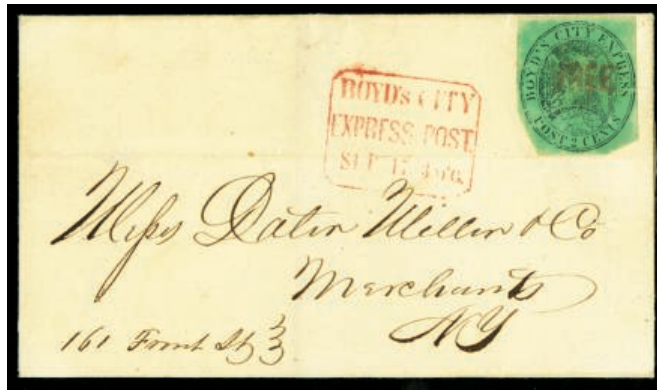 BOYD'S CITY EXPRESS
POST 2 CENTS
FREE
BOYD's CITY
EXPRESS POST.
SEP 17
Messrs Dater Miller & Co
Merchants
NY
161 Front St